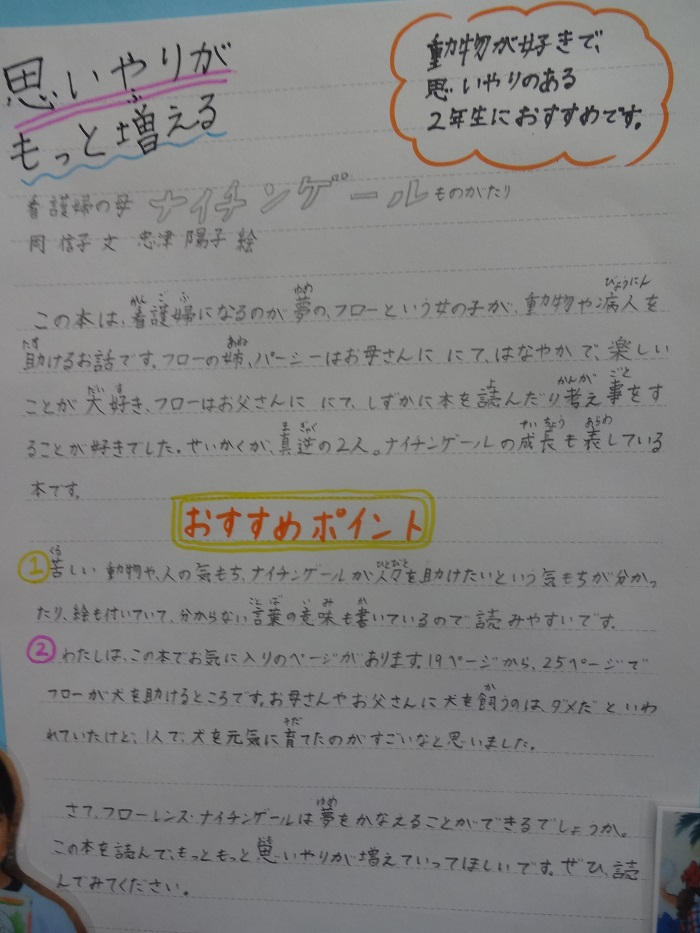 思いやりが
もっと増える
動物が好きで、
思いやりのある
2年生におすすめです。
看護婦の母 ナイチンゲール ものがたり
岡 信子 文 忠津 陽子 絵
この本は、看護婦になるのが夢の、フローという女の子が、動物や病人を
助けるお話です。フローの姉、パーシーはお母さんに にて、はなやかで、楽しい
ことが大好き、フローはお父さんに にて、しずかに本を読んだり考え事をす
ることが好きでした。せいかくが、真逆の2人。ナイチンゲールの成長も表している
本です。
おすすめポイント
1 苦しい動物や、人の気もち、ナイチンゲールが人々を助けたいという気もちが分かっ
たり、絵も付いていて、分からない言葉の意味も書いているので読みやすいです。
2 わたしは、この本でお気に入りのページがあります。19ページから、25ページで
フローが犬を助けるところです。お母さんやお父さんに犬を飼うのは、ダメだといわ
れていたけど、1人で、犬を元気に育てたのがすごいなと思いました。
さて、フローレンス・ナイチンゲールは夢をかなえることができるでしょうか。
この本を読んで、もっともっと思いやりが増えていってほしいです。ぜひ、読
んでみてください。